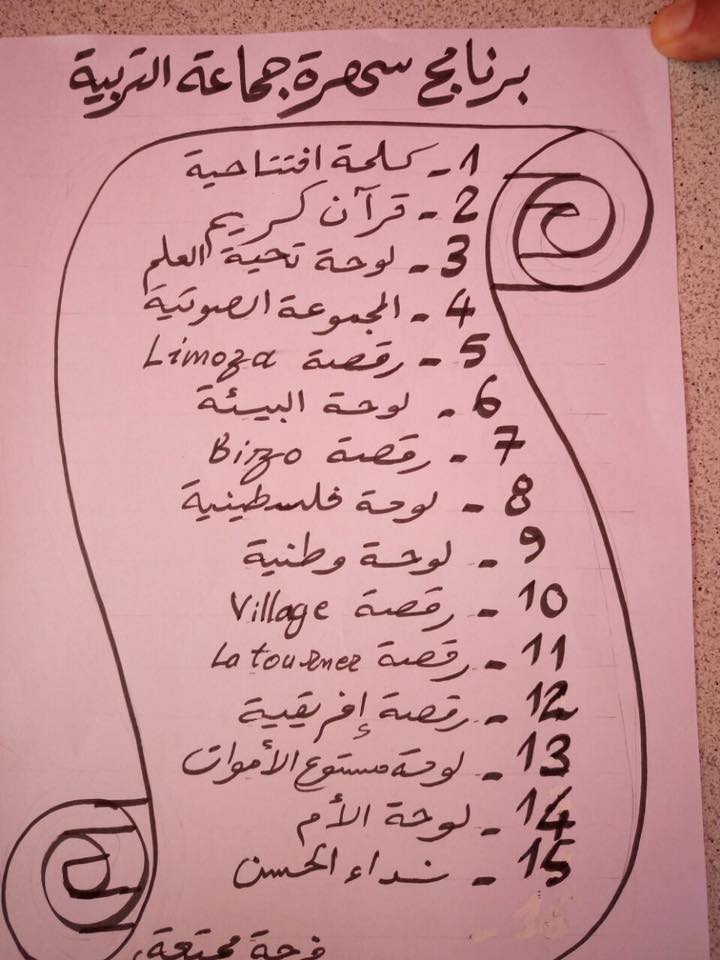 برنامج سهرة جماعة التربية
1 - كلمة افتتاحية
2 - قرآن كريم
3 - لوحة تحية العلم
4 - المجموعة الصوتية
5 - رقصة Limoza
6 - لوحة البيئة
7 - رقصة Bizzo
8 - لوحة فلسطينية
9 - لوحة وطنية
10 - رقصة Village
11 - رقصة La tournez
12 - رقصة إفريقية
13 - لوحة مستودع الأموات
14 - لوحة الأم
15 - نداء الحسن
فرجة ممتعة